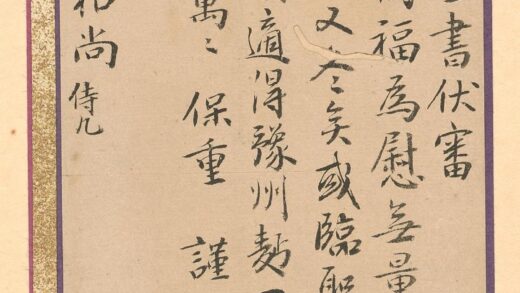 書伏審
福為慰無量
又冬矣或臨
適得豫州麵
萬〻保重 謹
和尚 侍几